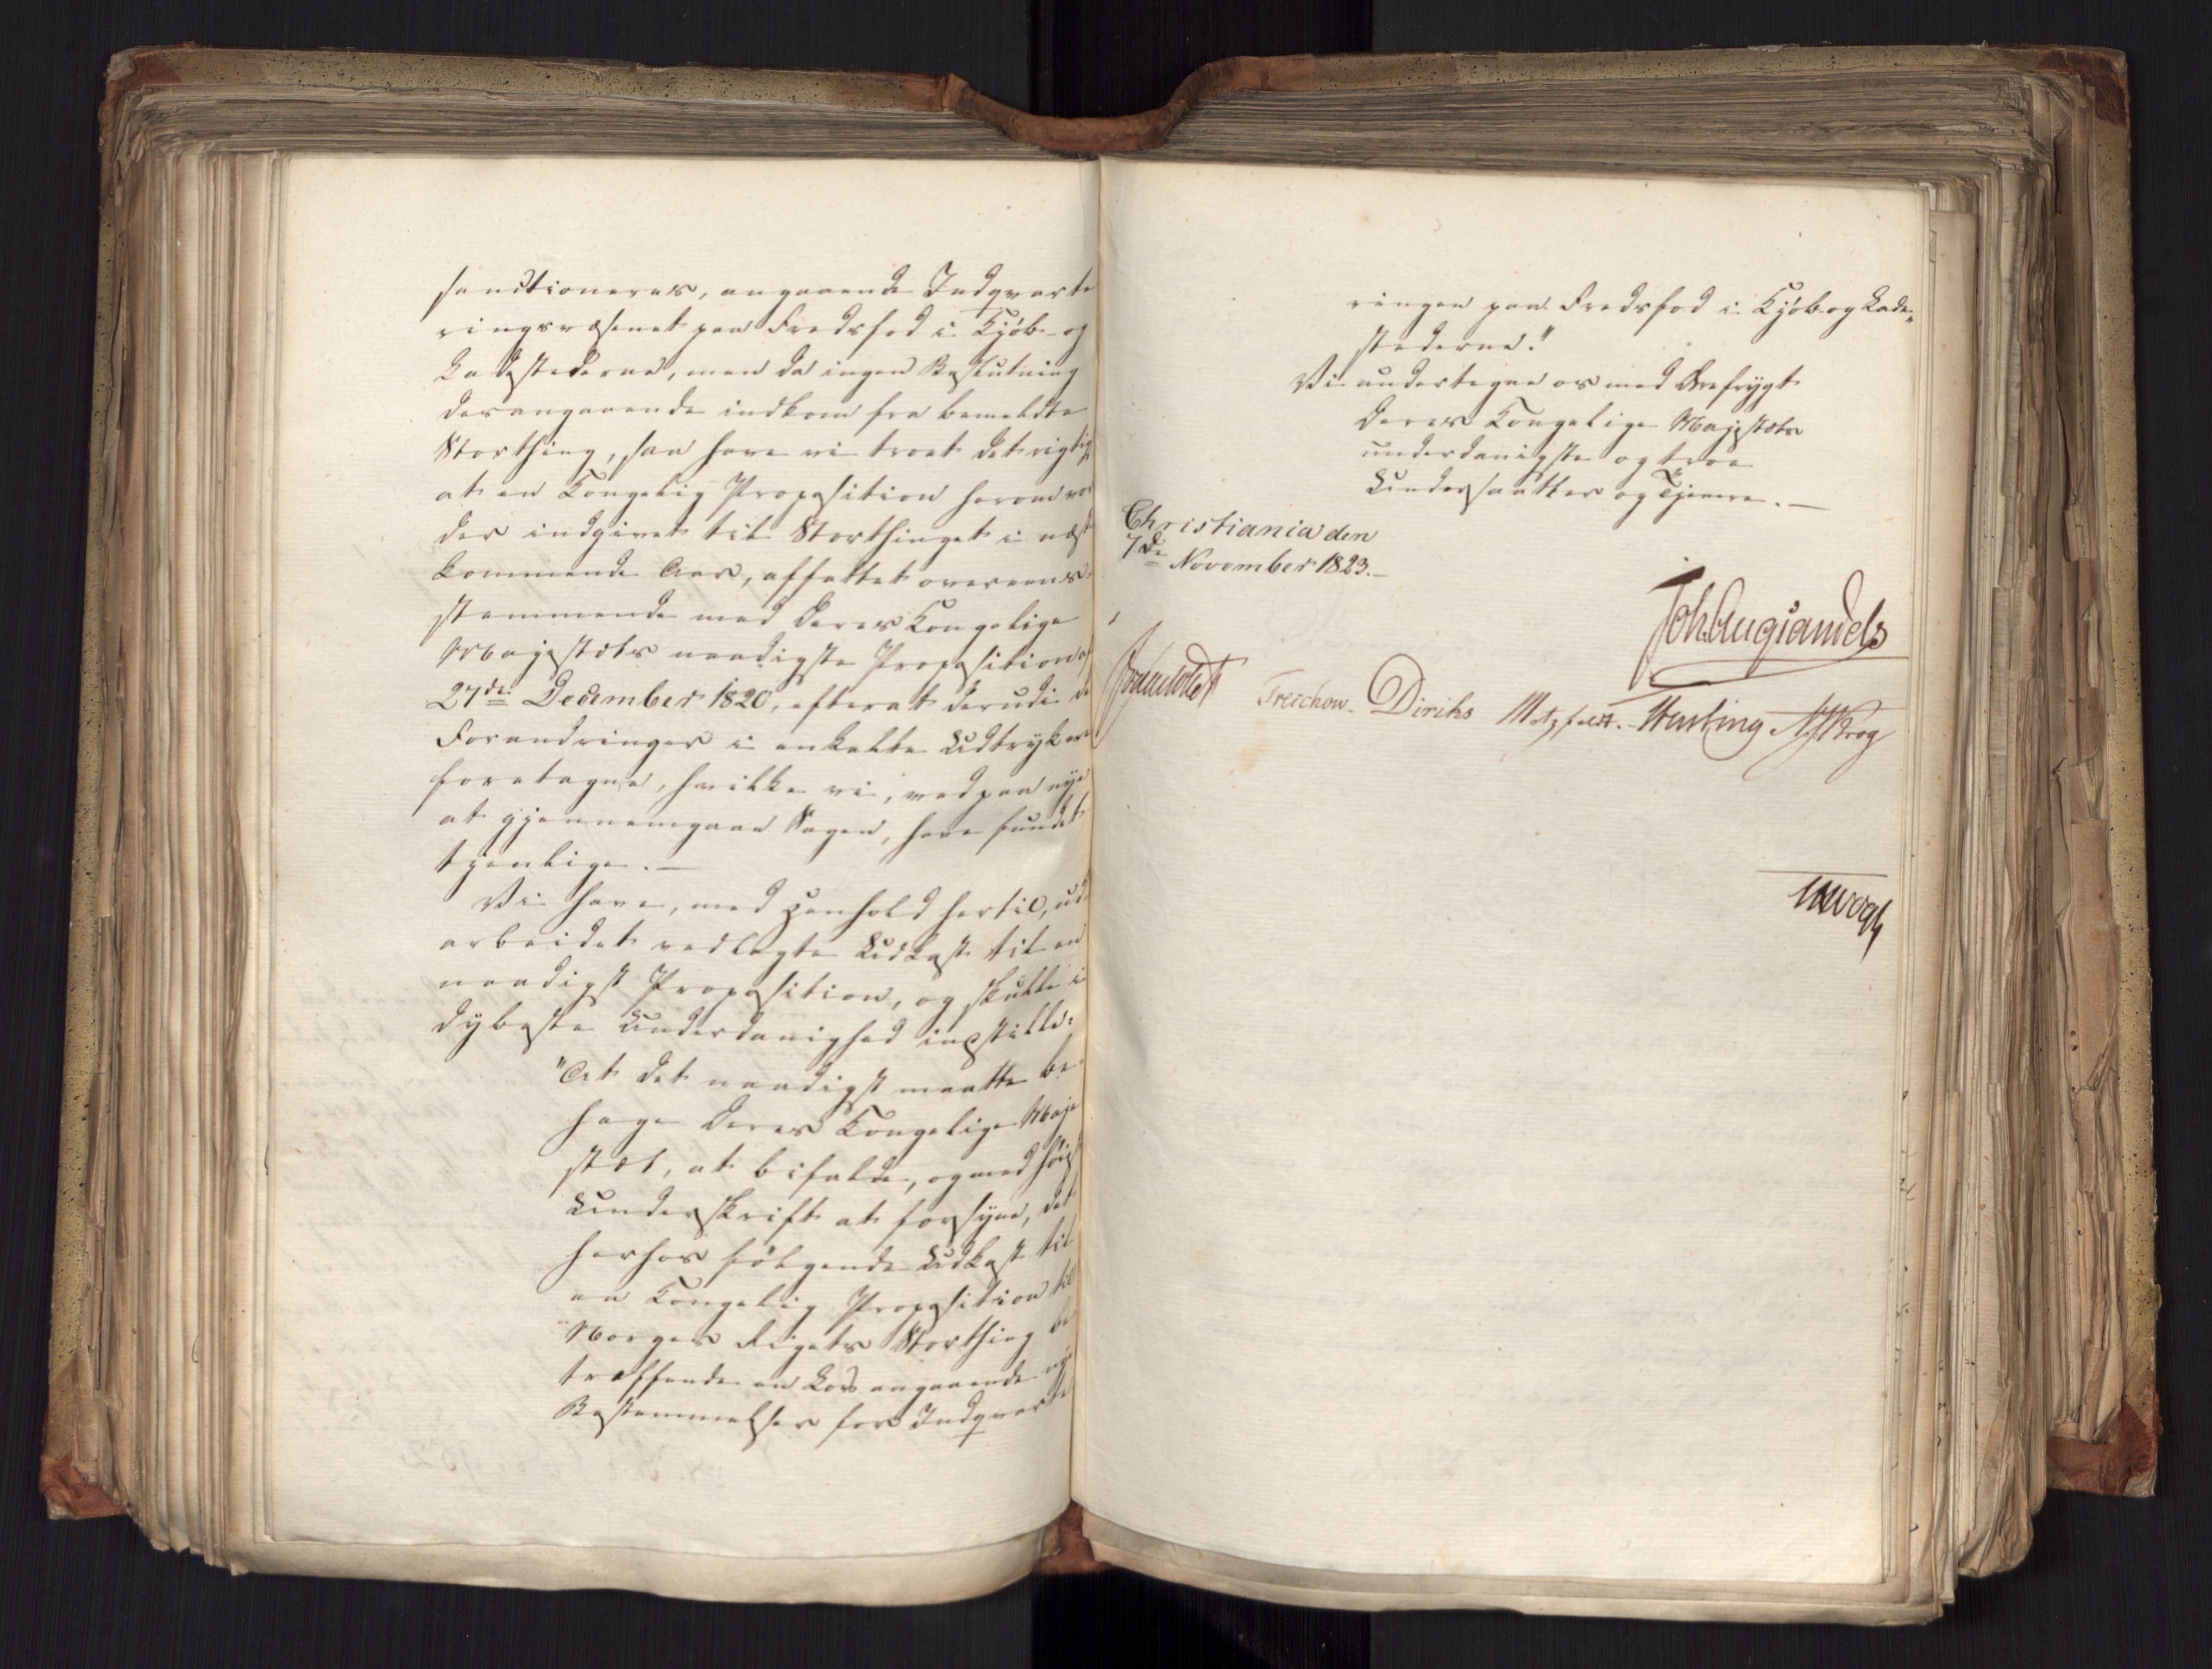 sanctioneres, angaaende Indqvarte
ringsvæsenet paa Fredsfod i Kjöb- og
Ladestederne, men da ingen Beslutning
desangaaende indkom fra bemeldte
Storthing, saa have vi troet det rigtigst
at en Kongelig Proposition herom vor
der indgivet til Storthinget i næst
kommende Aar, affattet overeens
stemmende med Deres Kongelige
Majestæts naadigste Proposition af
27de December 1820, efterat derudi de
Forandringer i enkelte Udtryk ere
foretagne, hvilke vi, ved paa nye
at gjennemgaae Sagen, have fundet
tjenlige.—
Vi have, med Henhold hertil, ud
arbeidet vedlagte Udkast til en
naadigst Proposition, og skulle i
dybeste Underdanighed indstille:
"At det naadigst maatte be-
hage Deres Kongelige Maje
stæt, at bifalde, og med höist
Underskrift at forsyne, det
herhos fölgende Udkast til
en Kongelig Proposition til
Norges Riges Storthing be
træffende en Lov angaaende nye
Bestemmelser for Indqvarte
ringen paa Fredsfod i Kjöb- og Lade-
stederne."
Vi undertegne os med Ærefrygt
Deres Kongelige Majestæts
underdanigste og troe
Undersaatter og Tjenere.—
Christiania den
7de November 1823.—
Joh. Aug. Sandels
Treschow. Diriks Motzfeldt. Krog